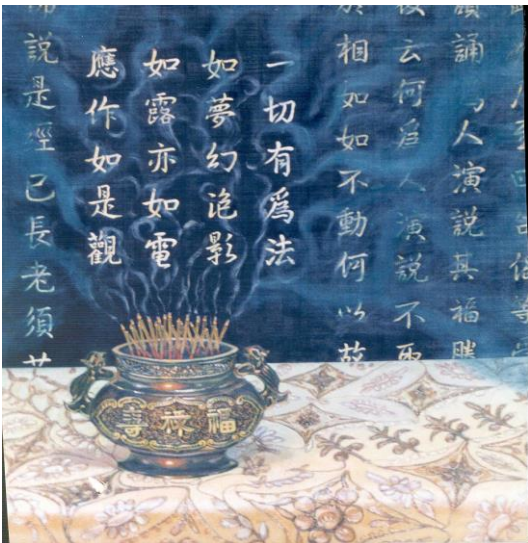 讀誦爲人演說其福勝
彼云何爲人演說不取
於相如如不動何以故
一切有爲法
如夢幻泡影
如露亦如電
應作如是觀
佛說是經已長老須菩
福祿壽